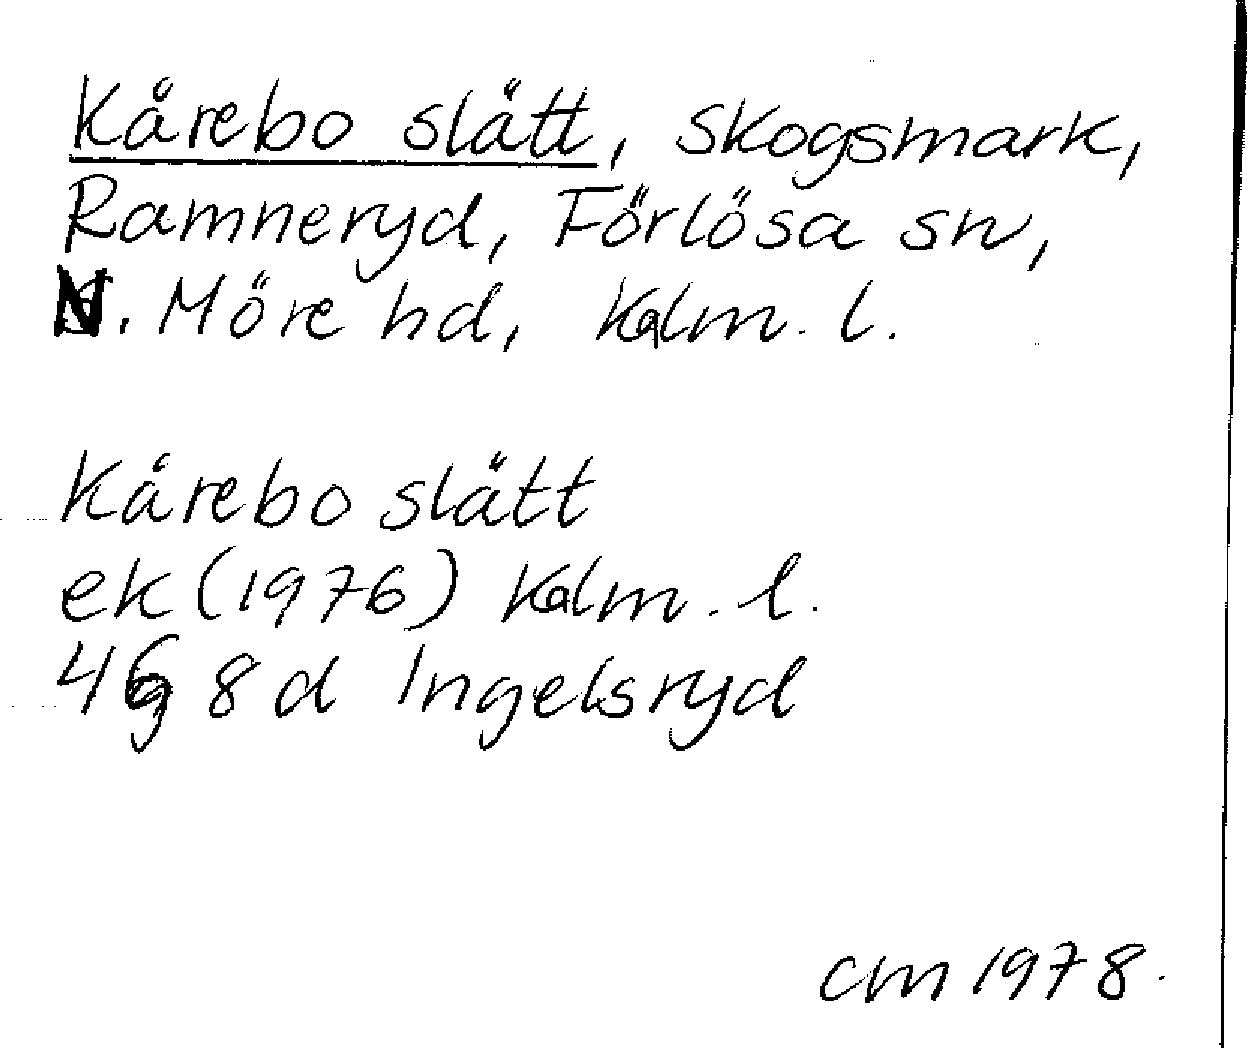 Kårebo slätt, skogsmark,
Ramneryd, Förlösa sn,
N. Möre hd, Kalm. l.
Kårebo slätt
ek (1976) Kalm. l.
4G 8d Ingelsryd
cm 1978.